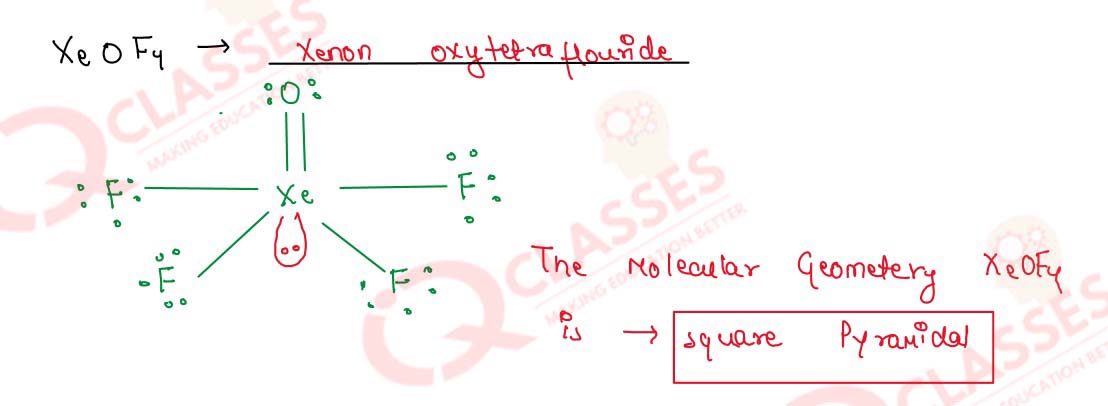 XeOF4 → Xenon oxytetraflouride
O
F Xe F
F F
The Molecular Geometery XeOF4
is → square Pyramidal
CLASSES
MAKING EDUCATION BETTER
CLASSES
MAKING EDUCATION BETTER
CLASSES
EDUCATION BETTER